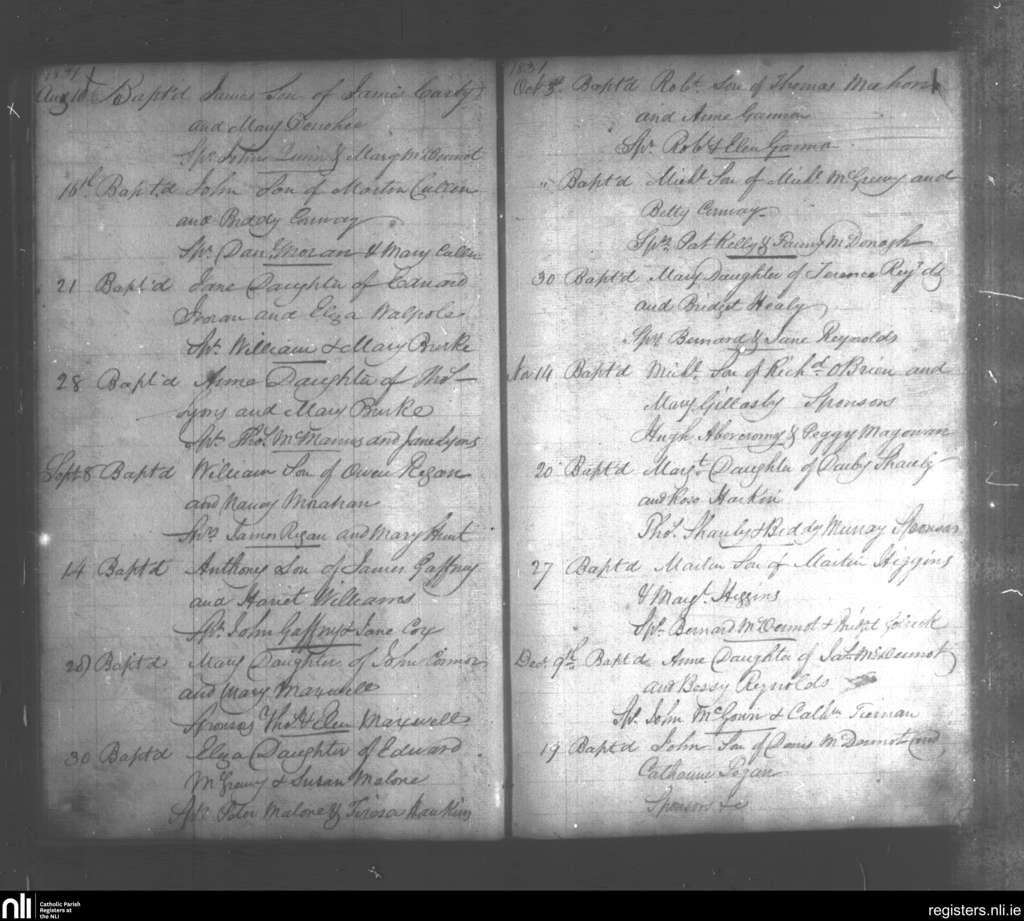 1831
Aug 10 Bapt'd James Son of James Carly
and Mary Donohoe
Spr. John Quinn & Mary McDermot
16th Bapt'd John Son of Martin Cullen
and Biddy Conway
Spr. Danl. Moran & Mary Cullen
21 Bapt'd Jane Daughter of Edward
Moran and Eliza Walpole
Spr. William & Mary Burke
28 Bapt'd Anne Daughter of Thos.
Lyons and Mary Burke
Spr. Thos. McManus and Jane Lyons
Sept 8 Bapt'd William Son of Owen Regan
and Nancy Monahan
Sprs James Regan and Mary Hunt
14 Bapt'd Anthony Son of James Gaffney
and Hariet Williams
Spr. John Gaffny & Jane Cox
28 Bapt'd Mary Daughter of John Connor
and Mary Maxwell
Sponsors Thos. & Elen Maxewell
30 Bapt'd Eliza Daughter of Edward
McGreevy & Susan Malone
Spr. Peter Malone & Teresa Hawkins
1831
Oct Bapt'd Robt. Son of Thomas Mahon
and Anne Gannon
Spr. Robt & Elen
" Bapt'd Michl. Son of Michl. McGreevy and
Betty Conway
Sprs. Pat Kelly & Fanny McDonogh
30 Bapt'd Mary Daughter of Terence Rey'ds
and Bridget Healy
Sprs Bernard & Jane Reynolds
Nov 14 Bapt'd Michl. Son of Richd. O'Brien and
Mary Gillasby Sponsors
Hugh Abercromy & Peggy Magowan
20 Bapt'd Margt. Daughter of Darby Shanly
and Rose Harkin
Thos. Shanly & Biddy Murray Sponsors
27 Bapt'd Martin Son of Martin Higgins
& Margt. Higgins
Spr. Bernard McDermot & Bridget
Decr. 9th Bapt'd Anne Daughter of Jas. McDermot
and Bessy Reynolds
Sp. John McGowin & Cathn Tiernan
19 Bapt'd John Son of Denis McDermot and
Catharine
Sponsors &c
nli Catholic Parish
Registers at
the NLI
registers.nli.ie